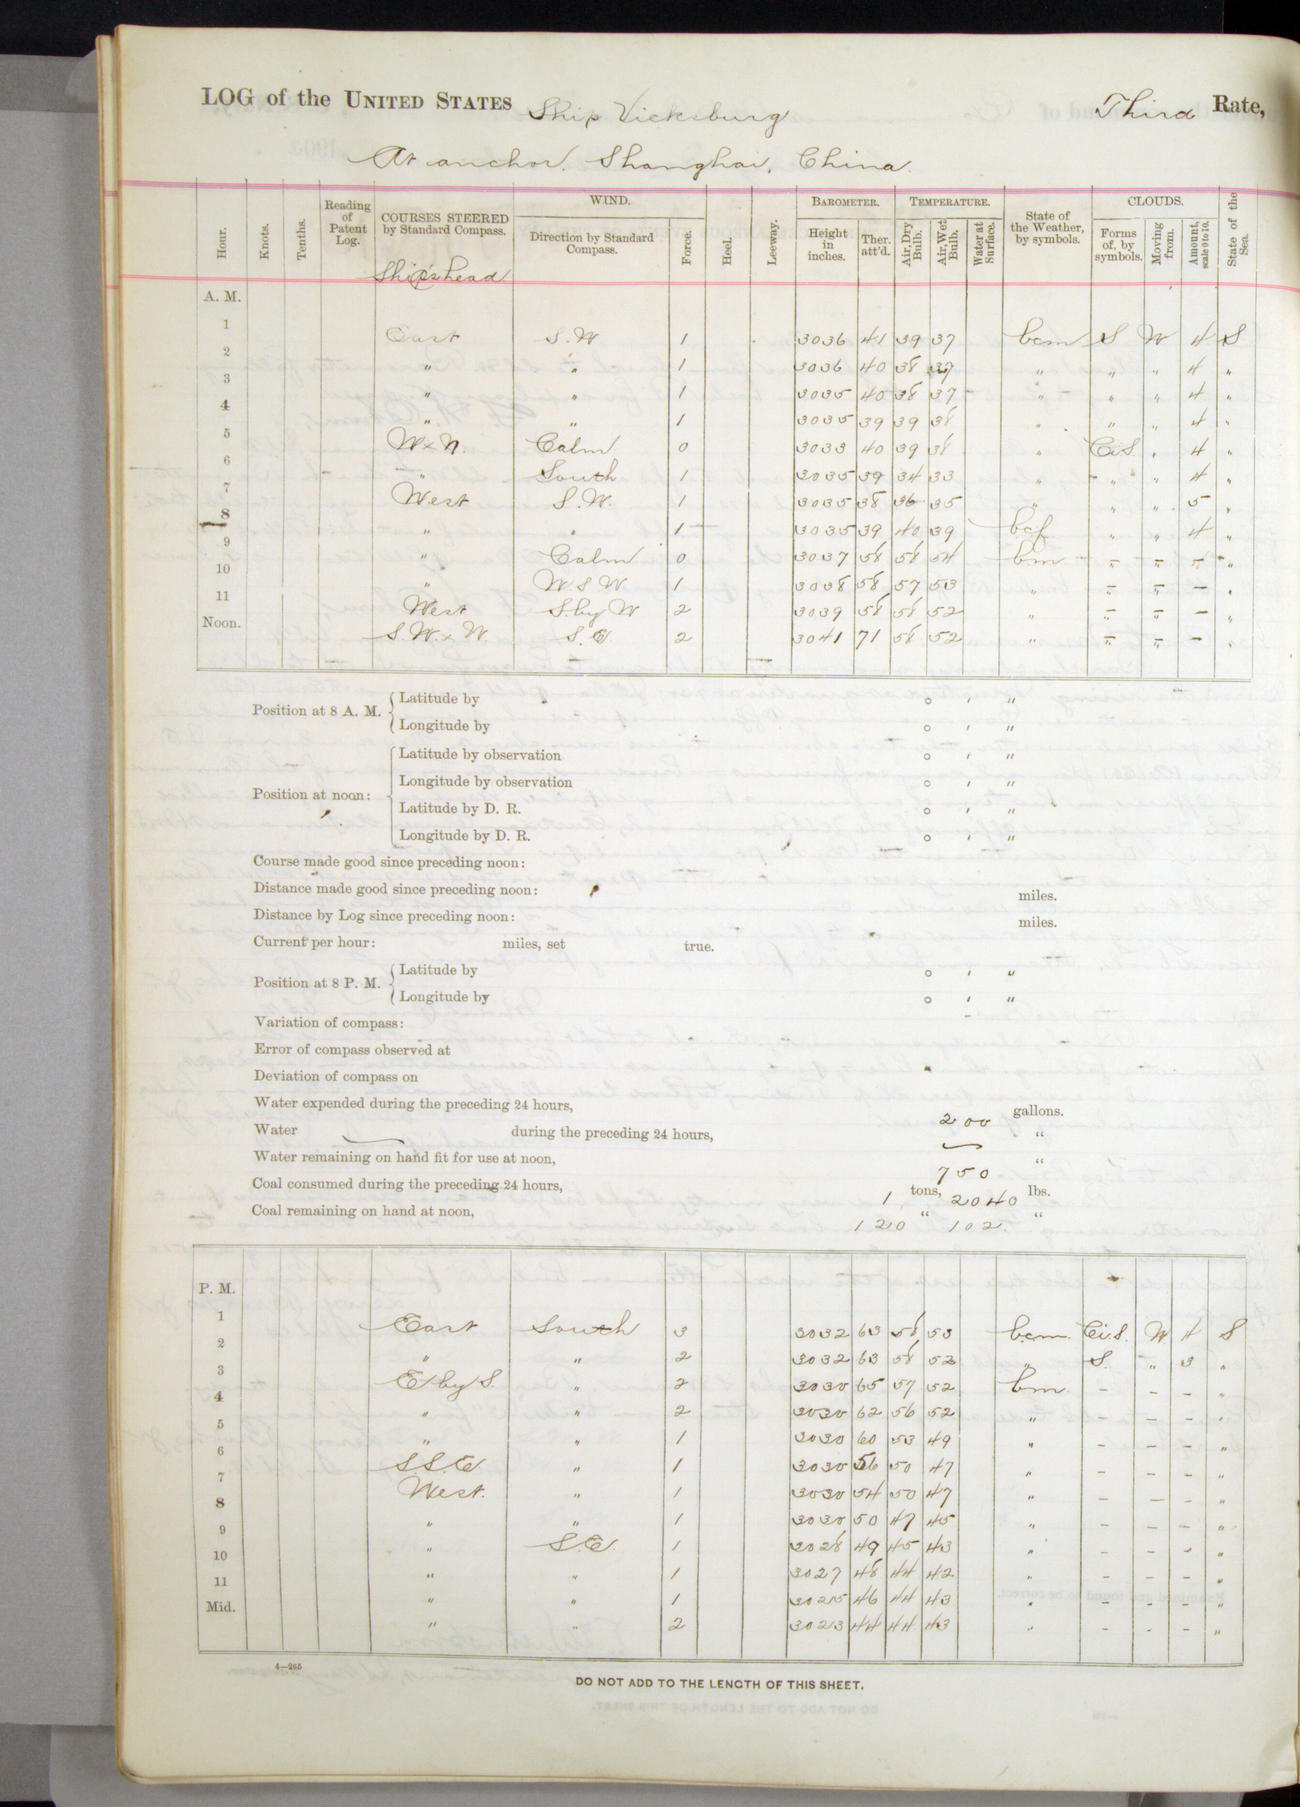 LOG of the UNITED STATES Ship Vicksburg Third Rate,
At anchor. Shanghai, China.
Hour. Knots. Tenths. Reading of Patent Log. COURSES STEERED by Standard Compass. WIND. Direction by Standard Compass. Force. Heel. Leeway. BAROMETER. Height in inches. Ther. att'd. TEMPERATURE. Air, Dry Bulb. Air, Wet Bulb. Water at Surface. State of the Weather, by symbols. CLOUDS. Forms of, by symbols. Moving from. Amount, scale 0 to 10. State of the Sea.
Ship's head
A. M.
1 East S.W 1 3036 41 39 37 bcm S W 4 S
2 " " 1 3036 40 38 37 " " " 4 "
3 " " 1 3035 40 38 37 " " " 4 "
4 " " 1 3035 39 39 38 " " " 4 "
5 W×N. Calm 0 3033 40 39 38 " Ci.S. " 4 "
6 " South 1 3035 39 34 33 " " " 4 "
7 West S.W. 1 3035 38 36 35 " " " 5 "
8 " " 1 3035 39 40 39 bcf " " 4 "
9 " Calm 0 3037 58 58 54 bm - - - "
10 " W S W. 1 3038 58 57 53 " - - - "
11 West S.by W 2 3039 58 58 52 " - - - "
Noon. S.W.×W. S.E 2 3041 71 58 52 " - - - "
Position at 8 A. M. { Latitude by ° ' "
Longitude by ° ' "
Position at noon: { Latitude by observation ° ' "
Longitude by observation ° ' "
Latitude by D. R. ° ' "
Longitude by D. R. ° ' "
Course made good since preceding noon:
Distance made good since preceding noon: miles.
Distance by Log since preceding noon: miles.
Current per hour: miles, set true.
Position at 8 P. M. { Latitude by ° ' "
Longitude by ° ' "
Variation of compass:
Error of compass observed at
Deviation of compass on
Water expended during the preceding 24 hours, 200 gallons.
Water during the preceding 24 hours, "
Water remaining on hand fit for use at noon, 750 "
Coal consumed during the preceding 24 hours, 1 tons, 2040 lbs.
Coal remaining on hand at noon, 120 " 102. "
P. M.
1 East South 3 3032 63 58 53 bcm. Ci.S. W. 4 S
2 " " 2 3032 63 58 52 " S. " 3 "
3 E by S. " 2 3030 65 57 52 bm - - - "
4 " " 2 3030 62 56 52 " - - - "
5 " " 1 3030 60 53 49 " - - - "
6 S.S.E. " 1 3030 56 50 47 " - - - "
7 West. " 1 3030 54 50 47 " - - - "
8 " " 1 3030 50 47 45 " - - - "
9 " S.E. 1 3028 49 45 43 " - - - "
10 " " 1 3027 48 44 42 " - - - "
11 " " 1 3025 46 44 43 " - - - "
Mid. " " 2 3023 44 44 43 " - - - "
4—265
DO NOT ADD TO THE LENGTH OF THIS SHEET.